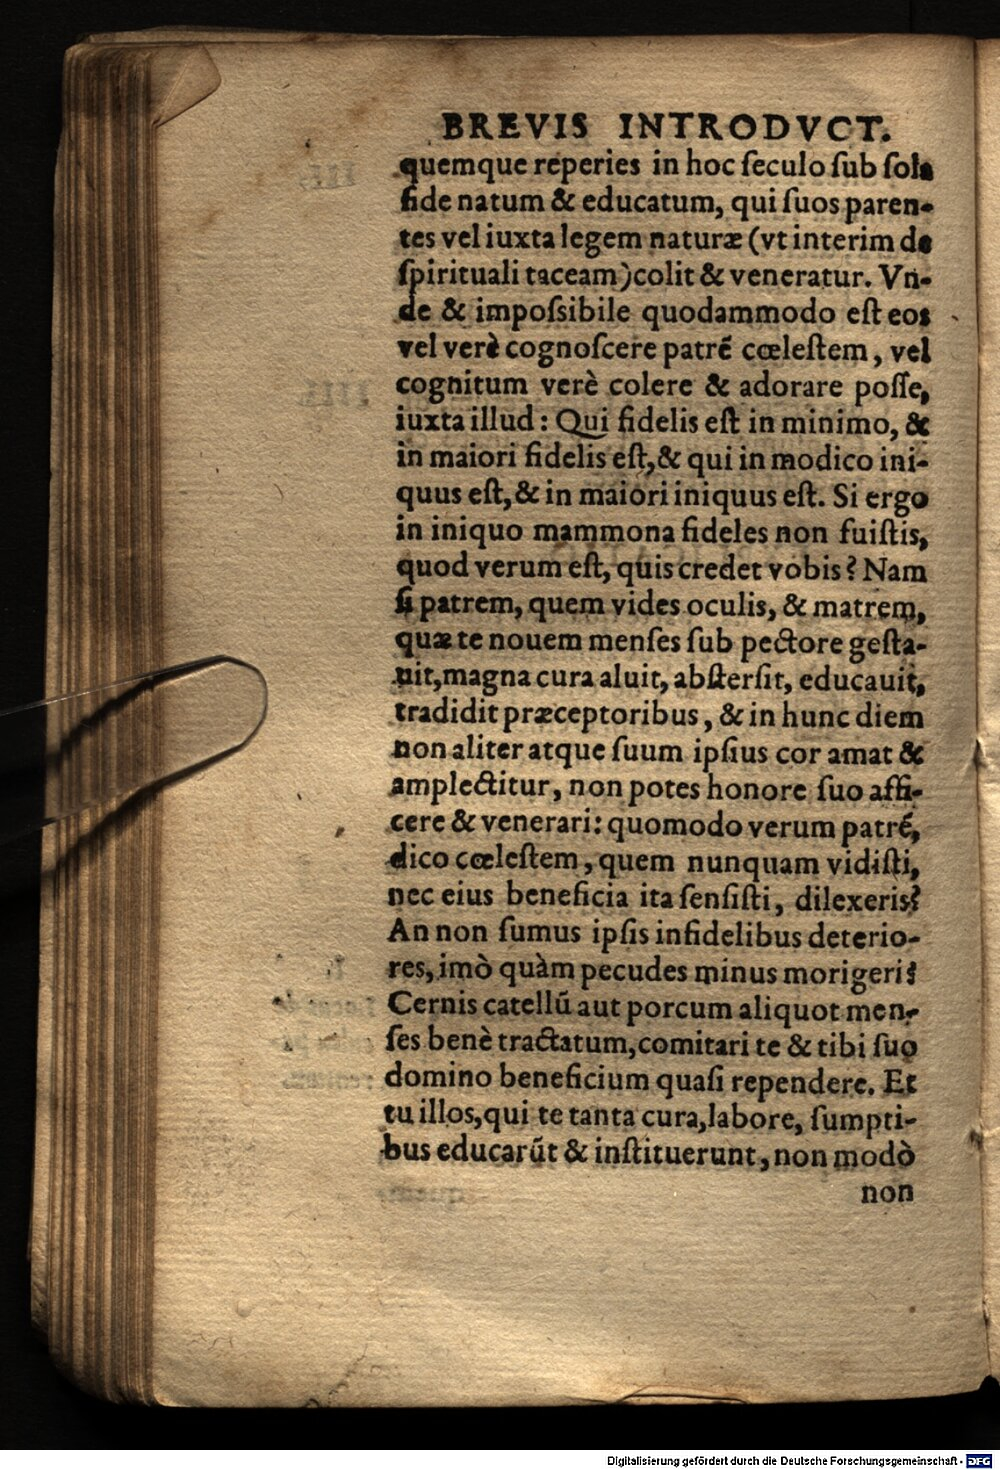 BREVIS INTRODVCT.
quemque reperies in hoc ſeculo ſub ſola
fide natum & educatum, qui ſuos paren-
tes vel iuxta legem naturæ (vt interim de
ſpirituali taceam) colit & veneratur. Vn-
de & impoſsibile quodammodo eſt eos
vel verè cognoſcere patrẽ cœleſtem, vel
cognitum verè colere & adorare poſſe,
iuxta illud: Qui fidelis eſt in minimo, &
in maiori fidelis eſt, & qui in modico ini-
quus eſt, & in maiori iniquus eſt. Si ergo
in iniquo mammona fideles non fuiſtis,
quod verum eſt, quis credet vobis? Nam
ſi patrem, quem vides oculis, & matrem,
quæ te nouem menſes ſub pectore geſta-
uit, magna cura aluit, abſterſit, educauit,
tradidit præceptoribus, & in hunc diem
non aliter atque ſuum ipſius cor amat &
amplectitur, non potes honore ſuo affi-
cere & venerari: quomodo verum patrẽ,
dico cœleſtem, quem nunquam vidiſti,
nec eius beneficia ita ſenſiſti, dilexeris?
An non ſumus ipſis infidelibus deterio-
res, imò quàm pecudes minus morigeri?
Cernis catellũ aut porcum aliquot men-
ſes benè tractatum, comitari te & tibi ſuo
domino beneficium quaſi rependere. Et
tu illos, qui te tanta cura, labore, ſumpti-
bus educarũt & inſtituerunt, non modò
non
Digitalisierung gefördert durch die Deutsche Forschungsgemeinschaft - DFG